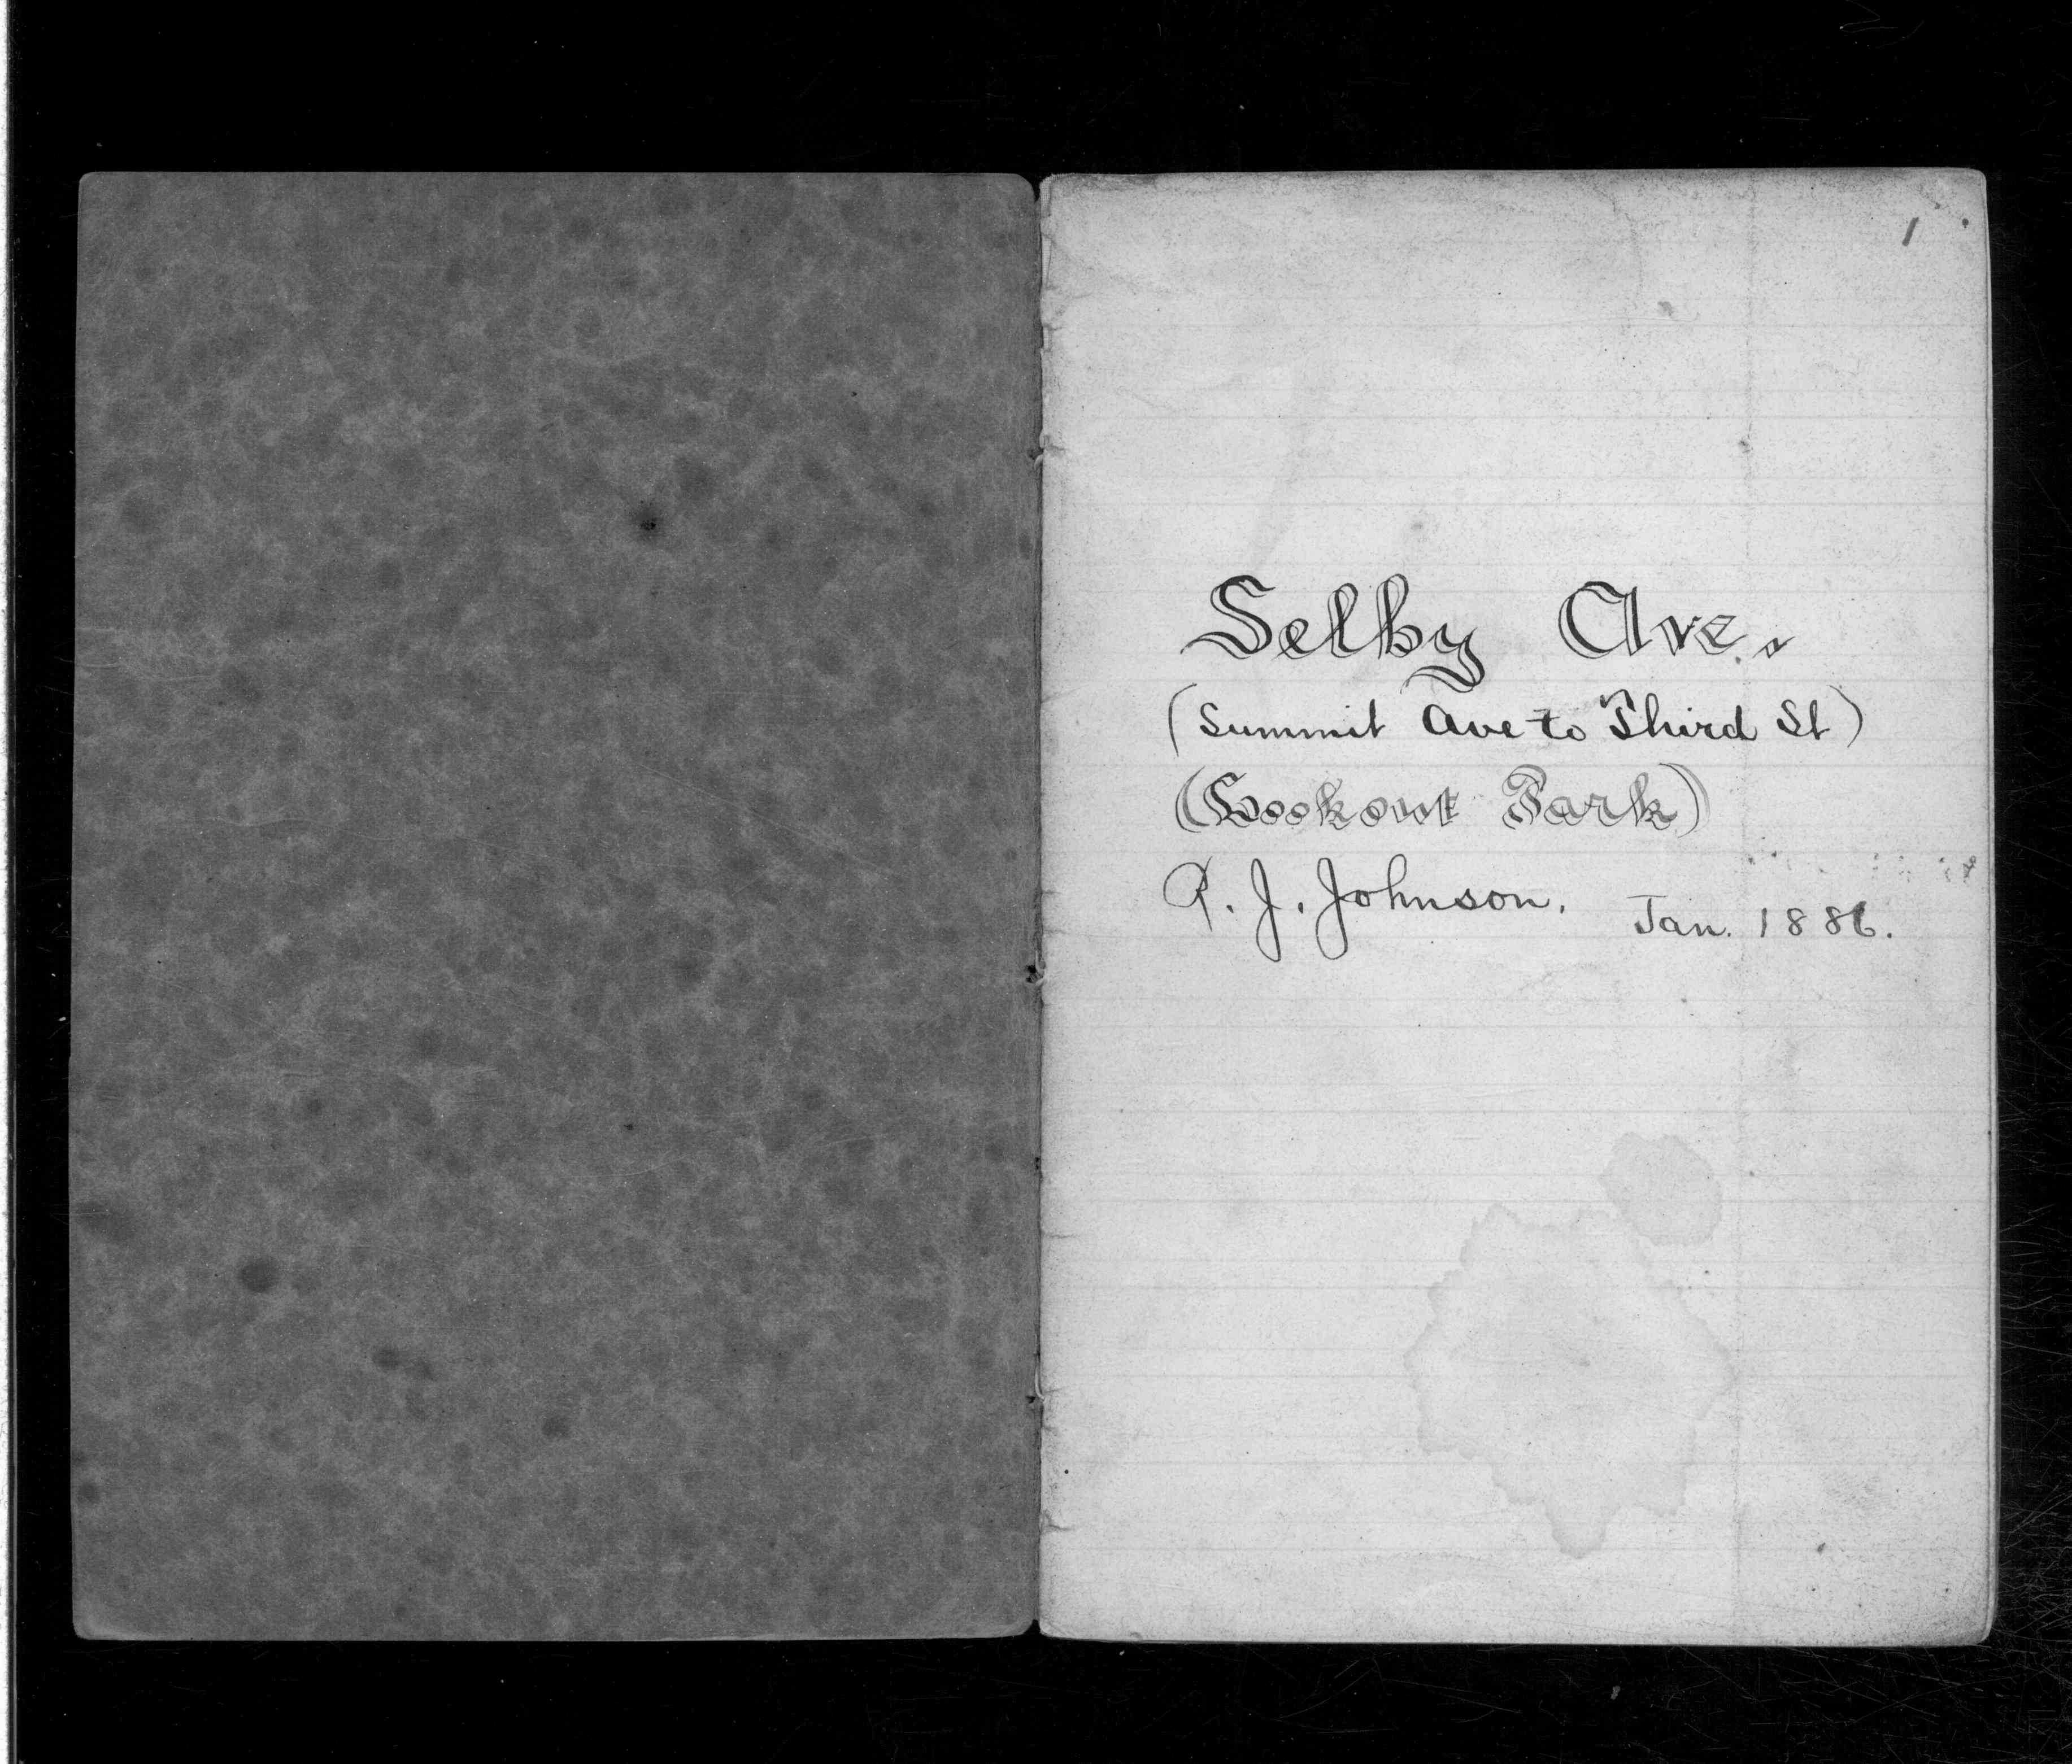 1
Selby Ave.
(Summit Ave to Third St)
(Lookout Park)
P. J. Johnson. Jan. 1886.